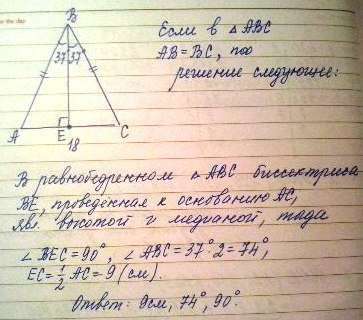 B
37° 37°
A E C
18
Если в △ABC
AB = BC, то
решение следующее:
В равнобедренном △ABC биссектриса
BE, проведённая к основанию AC,
явл. высотой и медианой, тогда
∠BEC = 90°, ∠ABC = 37°·2 = 74°,
EC = 1/2 AC = 9 (см).
Ответ: 9см, 74°, 90°.